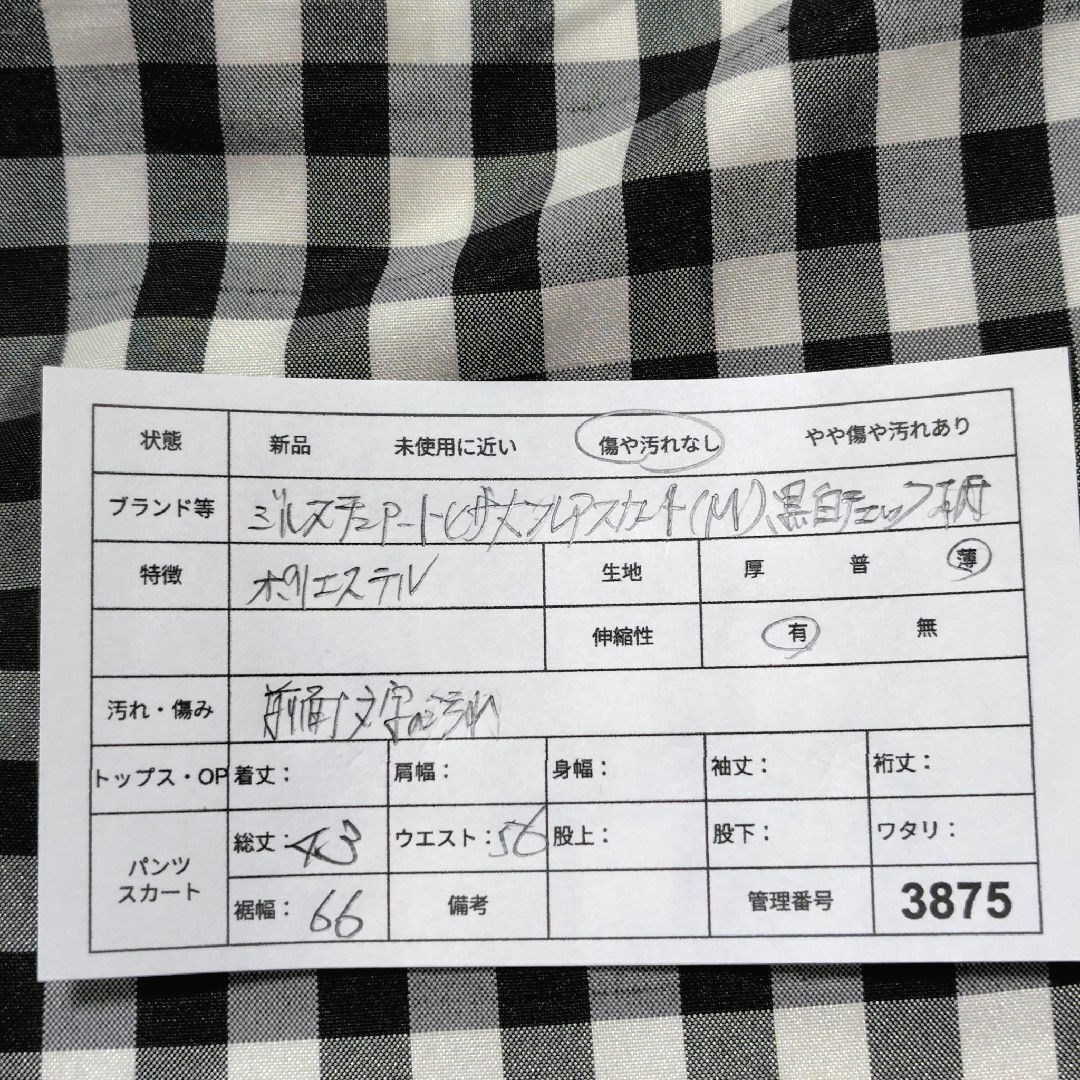 状態 新品 未使用に近い 傷や汚れなし やや傷や汚れあり
ブランド等 ジルスチュアートヒザ丈フレアスカート(M)、黒白チェック柄
特徴 ポリエステル 生地 厚 普 薄
伸縮性 有 無
汚れ・傷み 前面 文字 汚れ
トップス・OP 着丈: 肩幅: 身幅: 袖丈: 裄丈:
パンツ スカート 総丈: 43 ウエスト: 56 股上: 股下: ワタリ:
裾幅: 66 備考 管理番号 3875